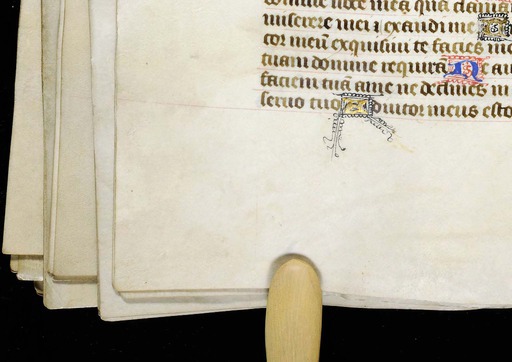 domine uocē meā qua clama
miserere mei ⁊ exaudi me
cor meū exquisiuit te facies me
tuam domine requirā Ne au
faciem tuā a me ne declines in
seruo tuo Adiutor meus esto